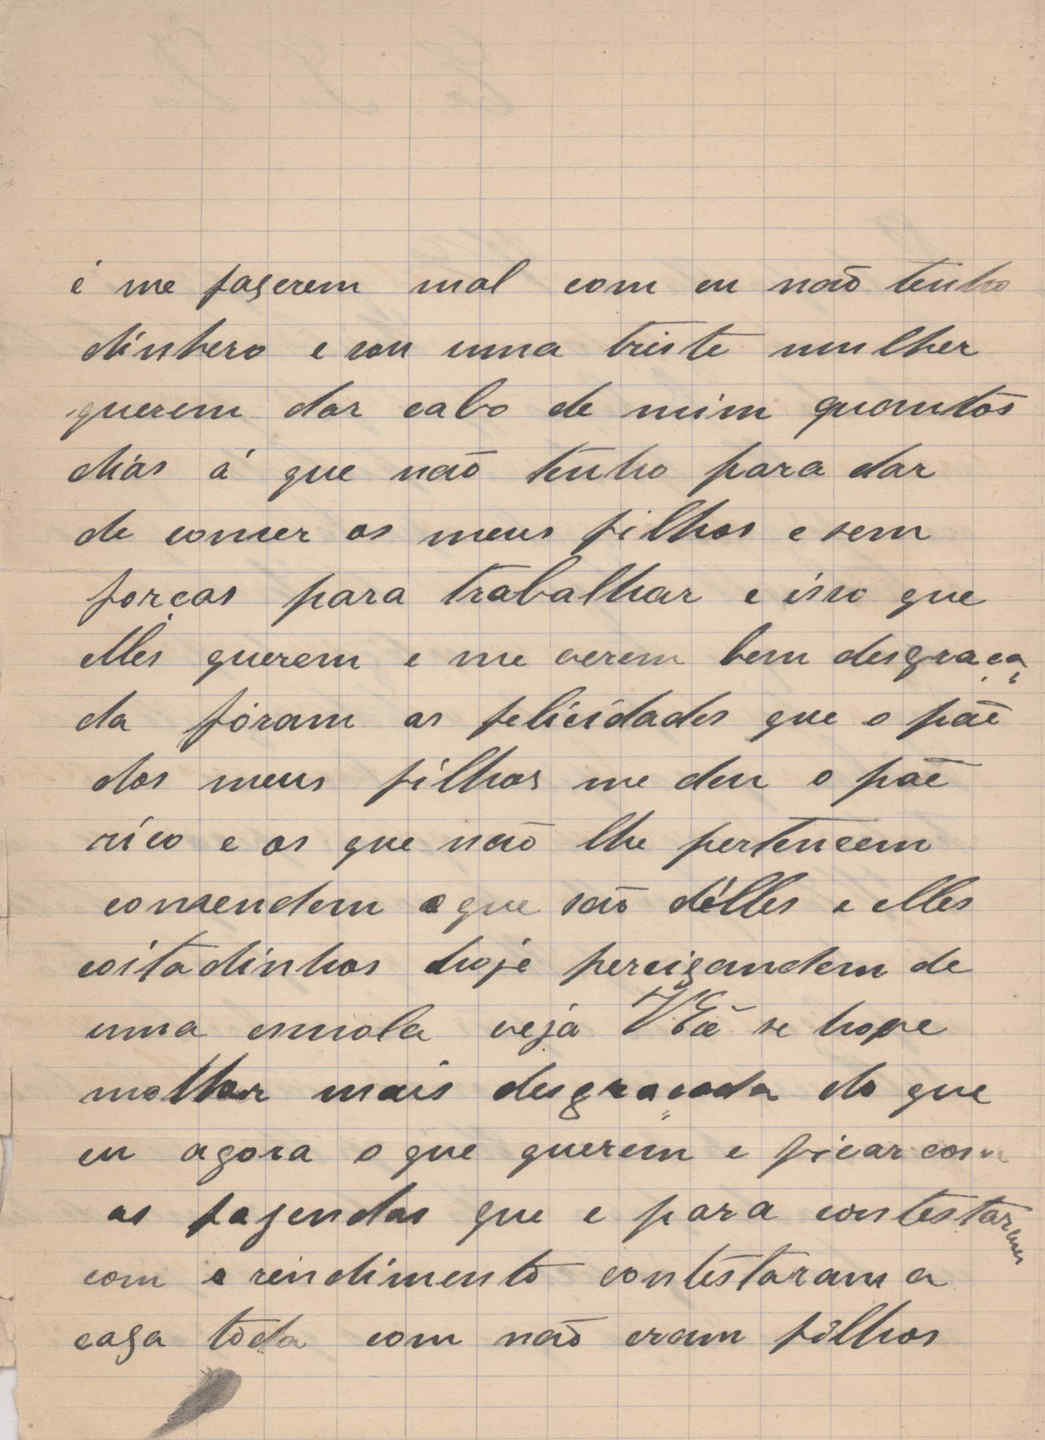 é me fazerem mal com eu não tenho
dinhero e sou uma triste mulher
querem dar cabo de mim quantos
dias á que não tenho para dar
de comer os meus filhos e sem
forças para trabalhar e isso que
elles querem e me verem bem desgraça
da fóram as felicidades que o pãe
dos meus filhos me deu o pãe
rico e os que não lhe pertencem
comendem o que são délles e elles
coitadinhos hoje percizandem de
uma esmola veja VExª se hove
molher mais desgraçada do que
eu agora o que querem e ficar com
as fazendas que e para contestaram
com o rendimento contestaram a
caza toda com não eram filhos